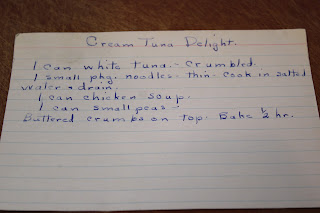 Cream Tuna Delight.
1 can white tuna. - Crumbled.
1 small pkg. noodles - thin - Cook in salted
water & drain.
1 can chicken soup.
1 can small peas -
Buttered crumbs on top. Bake 1/2 hr.